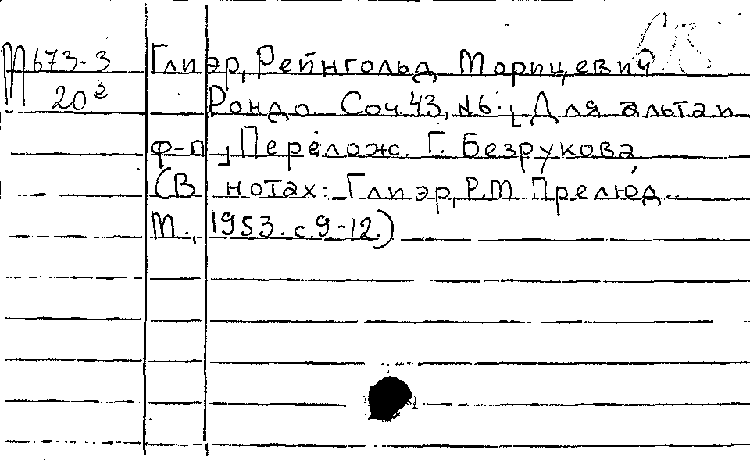 М673-3 Глиэр, Рейнгольд Морицевич
20² Рондо. Соч.43, №6. [Для альта и
ф-п]. Перелож. Г. Безрукова
(В нотах: Глиэр, Р.М. Прелюд..
М., 1953. с. 9-12.)